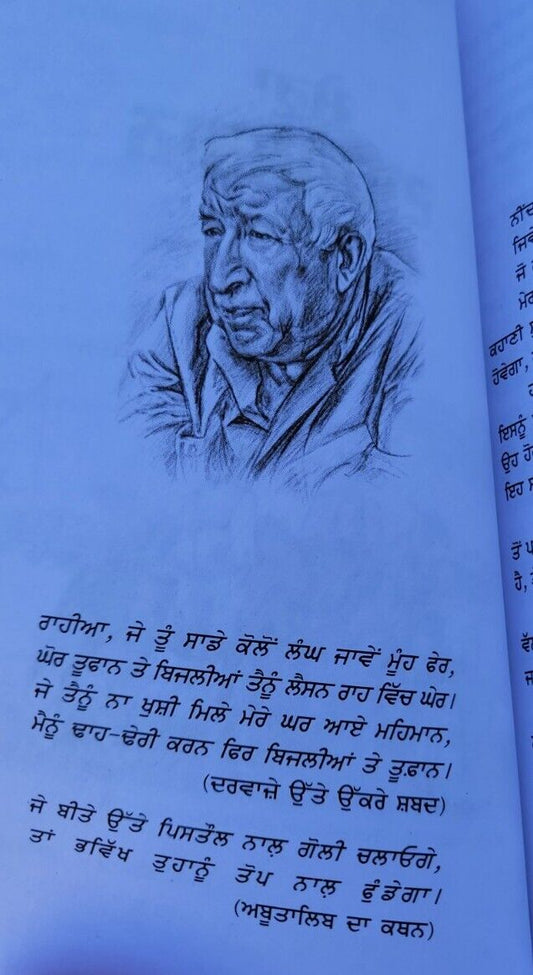 ਰਾਹੀਆ, ਜੇ ਤੂੰ ਸਾਡੇ ਕੋਲੋਂ ਲੰਘ ਜਾਵੇਂ ਮੂੰਹ ਫੇਰ,
ਘੋਰ ਤੂਫਾਨ ਤੇ ਬਿਜਲੀਆਂ ਤੈਨੂੰ ਲੈਸਨ ਰਾਹ ਵਿੱਚ ਘੇਰ।
ਜੇ ਤੈਨੂੰ ਨਾ ਖੁਸ਼ੀ ਮਿਲੇ ਮੇਰੇ ਘਰ ਆਏ ਮਹਿਮਾਨ,
ਮੈਨੂੰ ਢਾਹ-ਢੇਰੀ ਕਰਨ ਫਿਰ ਬਿਜਲੀਆਂ ਤੇ ਤੂਫ਼ਾਨ।
(ਦਰਵਾਜ਼ੇ ਉੱਤੇ ਉੱਕਰੇ ਸ਼ਬਦ)
ਜੇ ਬੀਤੇ ਉੱਤੇ ਪਿਸਤੌਲ ਨਾਲ਼ ਗੋਲੀ ਚਲਾਓਗੇ,
ਤਾਂ ਭਵਿੱਖ ਤੁਹਾਨੂੰ ਤੋਪ ਨਾਲ਼ ਫੁੰਡੇਗਾ।
(ਅਬੂਤਾਲਿਬ ਦਾ ਕਥਨ)
ਜੋ
ਕਹਾਣੀ
ਹੋਵੇਗਾ,
ਇਸਨੂੰ
ਉਹ
ਇਹ
ਤੋਂ
ਹੈ,